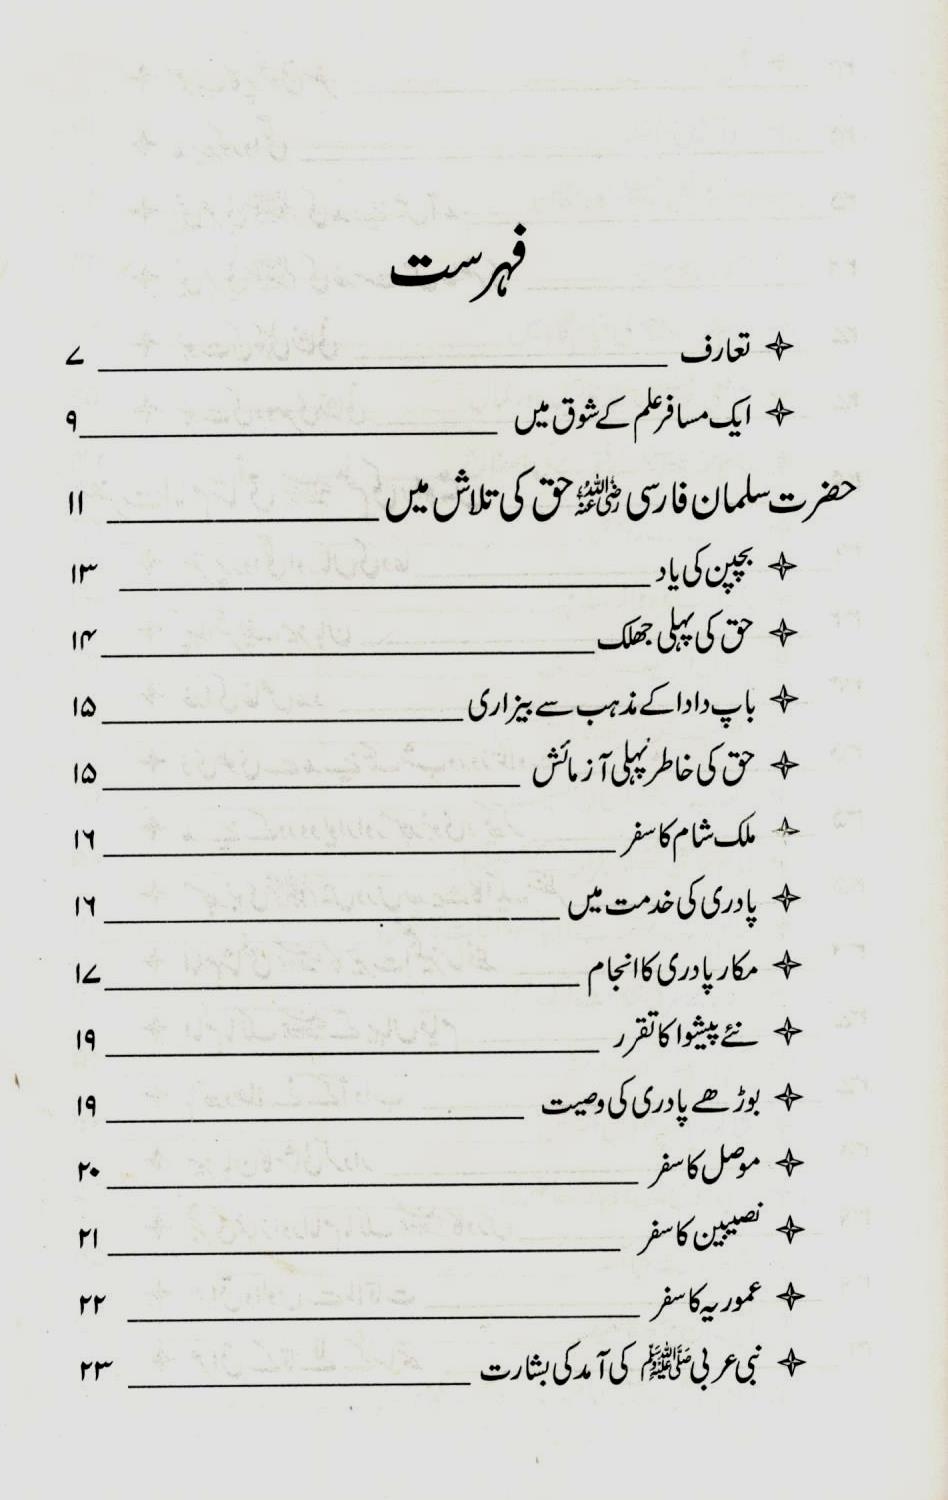 فہرست
✧ تعارف ۷
✧ ایک مسافر علم کے شوق میں ۹
حضرت سلمان فارسی رضی اللہ عنہ حق کی تلاش میں ۱۱
✧ بچپن کی یاد ۱۳
✧ حق کی پہلی جھلک ۱۴
✧ باپ دادا کے مذہب سے بیزاری ۱۵
✧ حق کی خاطر پہلی آزمائش ۱۵
✧ ملک شام کا سفر ۱۶
✧ پادری کی خدمت میں ۱۶
✧ مکار پادری کا انجام ۱۷
✧ نئے پیشوا کا تقرر ۱۹
✧ بوڑھے پادری کی وصیت ۱۹
✧ موصل کا سفر ۲۰
✧ نصیبین کا سفر ۲۱
✧ عموریہ کا سفر ۲۲
✧ نبی عربی ﷺ کی آمد کی بشارت ۲۳